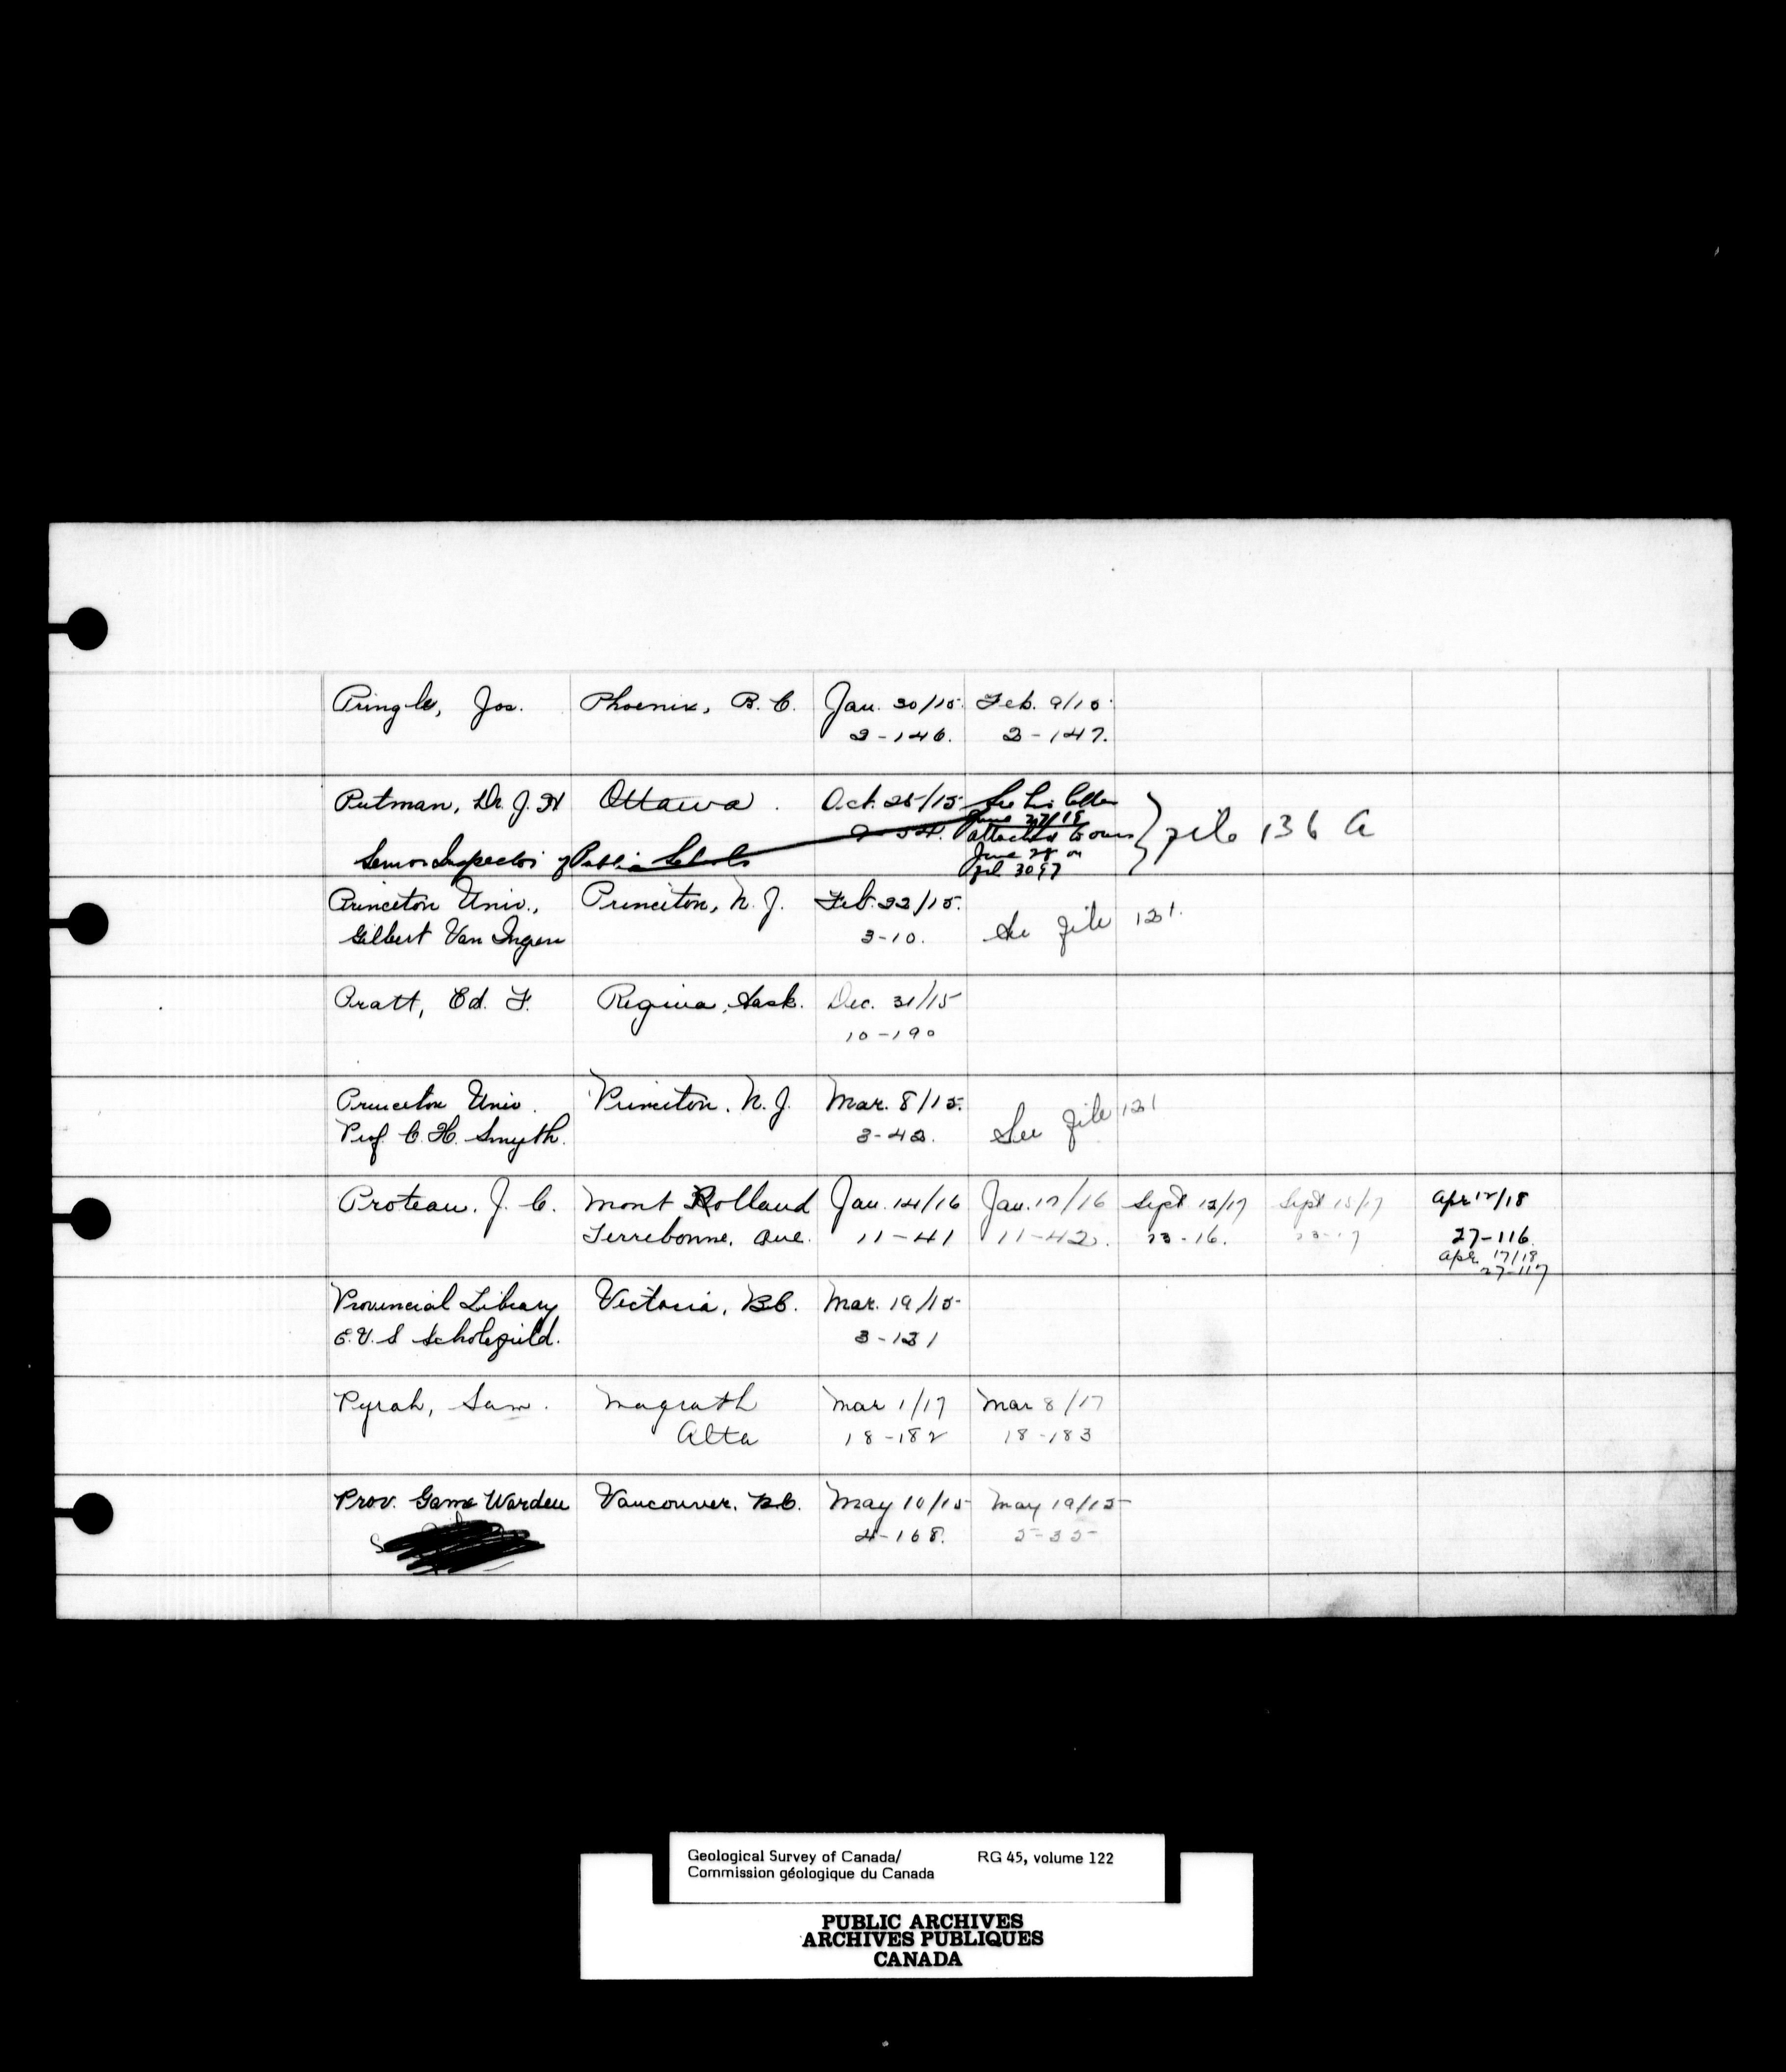 Pringle, Jos. Phoenix, B. C. Jan. 30/15. Feb. 9/15.
2-146. 2-147.
Putman, Dr. J. H Ottawa. Oct. 25/15 See his letter
June 27/18
9-54. attached to ours } file 136 A
Senior Inspector of Public Schools June 28 on
file 3097
Princeton Univ., Princeton, N. J. Feb. 22/15.
Gilbert Van Ingen 3-10. See file 121.
Pratt, Ed. F. Regina, Sask. Dec. 31/15
10-190
Princeton Univ. Princeton, N. J. Mar. 8/15. See file 121
Prof C. H. Smyth. 3-42.
Proteau. J. C. Mont Rolland Jan. 14/16 Jan. 17/16 Sept 12/17 Sept 15/17 Apr 12/18
Terrebonne, Que. 11-41 11-42. 23-16. 23-17 27-116.
Apr. 17/18
27-117
Provincial Library Victoria, B.C. Mar. 19/15
E. O. S Scholefield. 3-131
Pyrah, Sam. Magrath Mar 1/17 Mar 8/17
Alta 18-182 18-183
Prov. Game Warden Vancouver, B.C. May 10/15 May 19/15
4-168. 5-35
Geological Survey of Canada/ RG 45, volume 122
Commission géologique du Canada
PUBLIC ARCHIVES
ARCHIVES PUBLIQUES
CANADA